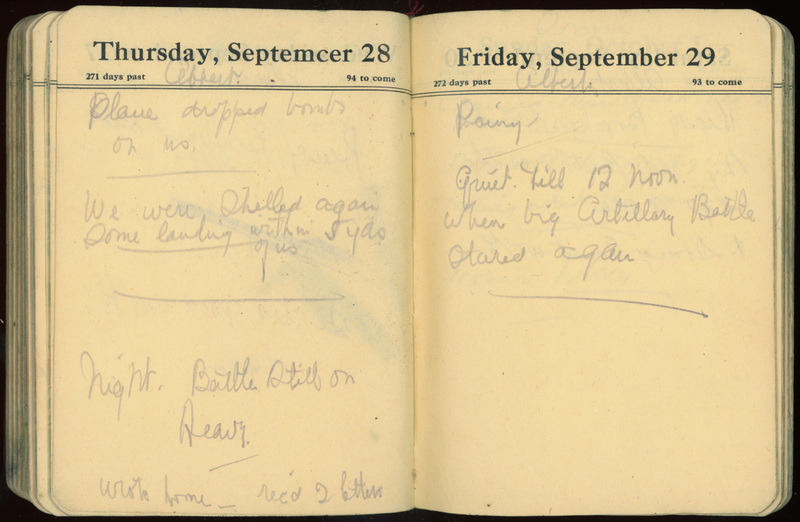 Thursday, Septemcer 28
271 days past 94 to come
Albert.
Plane dropped bombs
on us.
We were Shelled again
Some landing within 5 yds
of us
Night. Battle Still on
Heavy.
wrote home - rec'd 2 letters
Friday, September 29
272 days past 93 to come
Albert.
Rainy -
Quiet. till 12 Noon.
when big Artillary Battle
stared again